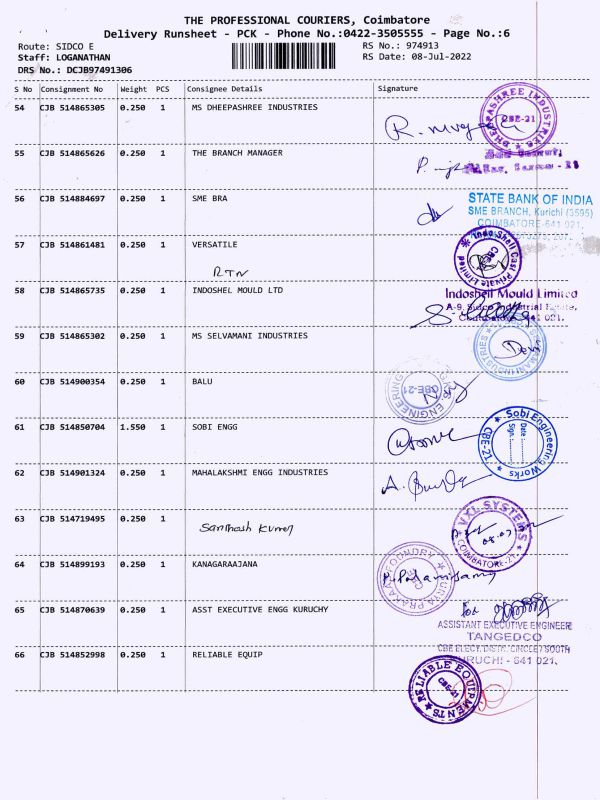 THE PROFESSIONAL COURIERS, Coimbatore
Delivery Runsheet - PCK - Phone No.:0422-3505555 - Page No.:6
Route: SIDCO E RS No.: 974913
Staff: LOGANATHAN RS Date: 08-Jul-2022
DRS No.: DCJB97491306
S No Consignment No Weight PCS Consignee Details Signature
54 CJB 514865305 0.250 1 MS DHEEPASHREE INDUSTRIES
DHEEPASHREE INDUSTRIES CBE-21
55 CJB 514865626 0.250 1 THE BRANCH MANAGER
56 CJB 514884697 0.250 1 SME BRA
STATE BANK OF INDIA
SME BRANCH, Kurichi (3595)
COIMBATORE-641 021.
57 CJB 514861481 0.250 1 VERSATILE
RTN
Indo Shell Cast Private Limited CBE
58 CJB 514865735 0.250 1 INDOSHEL MOULD LTD
Indoshell Mould Limited
A-9, Sidco Industrial Estate,
641 021.
59 CJB 514865302 0.250 1 MS SELVAMANI INDUSTRIES
Devi
60 CJB 514900354 0.250 1 BALU
ENGINEERING CBE-21
61 CJB 514850704 1.550 1 SOBI ENGG
Sobi Engineering Works CBE-21 Date Sign
62 CJB 514901324 0.250 1 MAHALAKSHMI ENGG INDUSTRIES
63 CJB 514719495 0.250 1
Santhosh Kumar
VXL SYSTEMS COIMBATORE-21
64 CJB 514899193 0.250 1 KANAGARAAJANA
FOUNDRY
P. Palanisamy
65 CJB 514870639 0.250 1 ASST EXECUTIVE ENGG KURUCHY
for
ASSISTANT EXECUTIVE ENGINEER
TANGEDCO
CBE ELECY. DISTN. CIRCLE / SOUTH
KURUCHI - 641 021.
66 CJB 514852998 0.250 1 RELIABLE EQUIP
RELIABLE EQUIPMENTS CBE-21